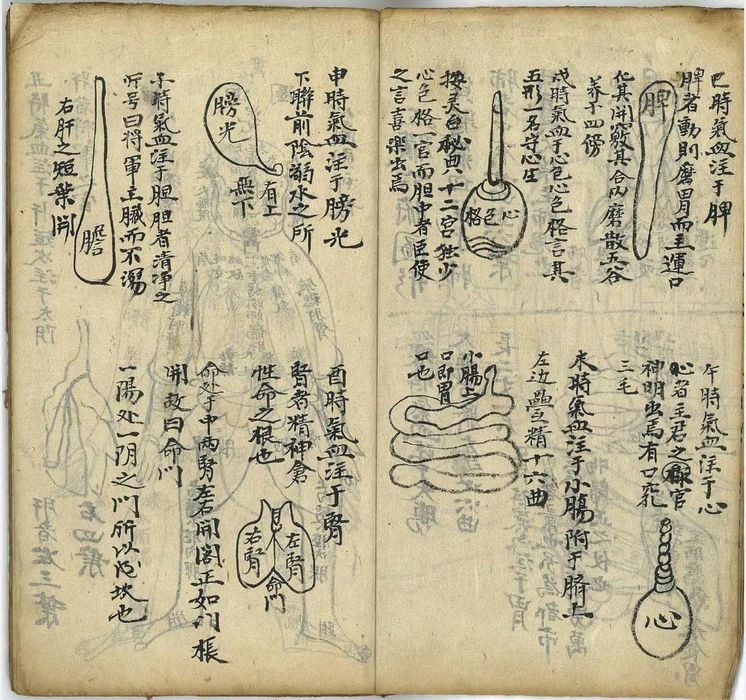 巳時氣血注于脾
脾者動則磨胃而主運口
脾
化其開竅其合以磨散五谷
養于四傍
戌時氣血于心色心色格言其
五形一名守心主
心色格
按灵台秘典十二宮独少
心色格一宮而胆中者臣使
之言喜樂出焉
午時氣血注于心
心者主君之官
神明出焉有口竅
三毛
心
未時氣血注于小腸附于臍上
左边疊精十六曲
小腸上
口即胃
口也
申時氣血注于膀光
下聯前陰溺水之所
膀光
有上
無下
子時氣血注于胆胆者清净之
所号曰將軍主臟而不瀉
膽
右肝之短葉間
酉時氣血注于腎
腎者精神倉
性命之根也
左腎
命門
右腎
命处于中两腎左右開閤正如门
開故曰命門
一陽处二阴之门所以坎也